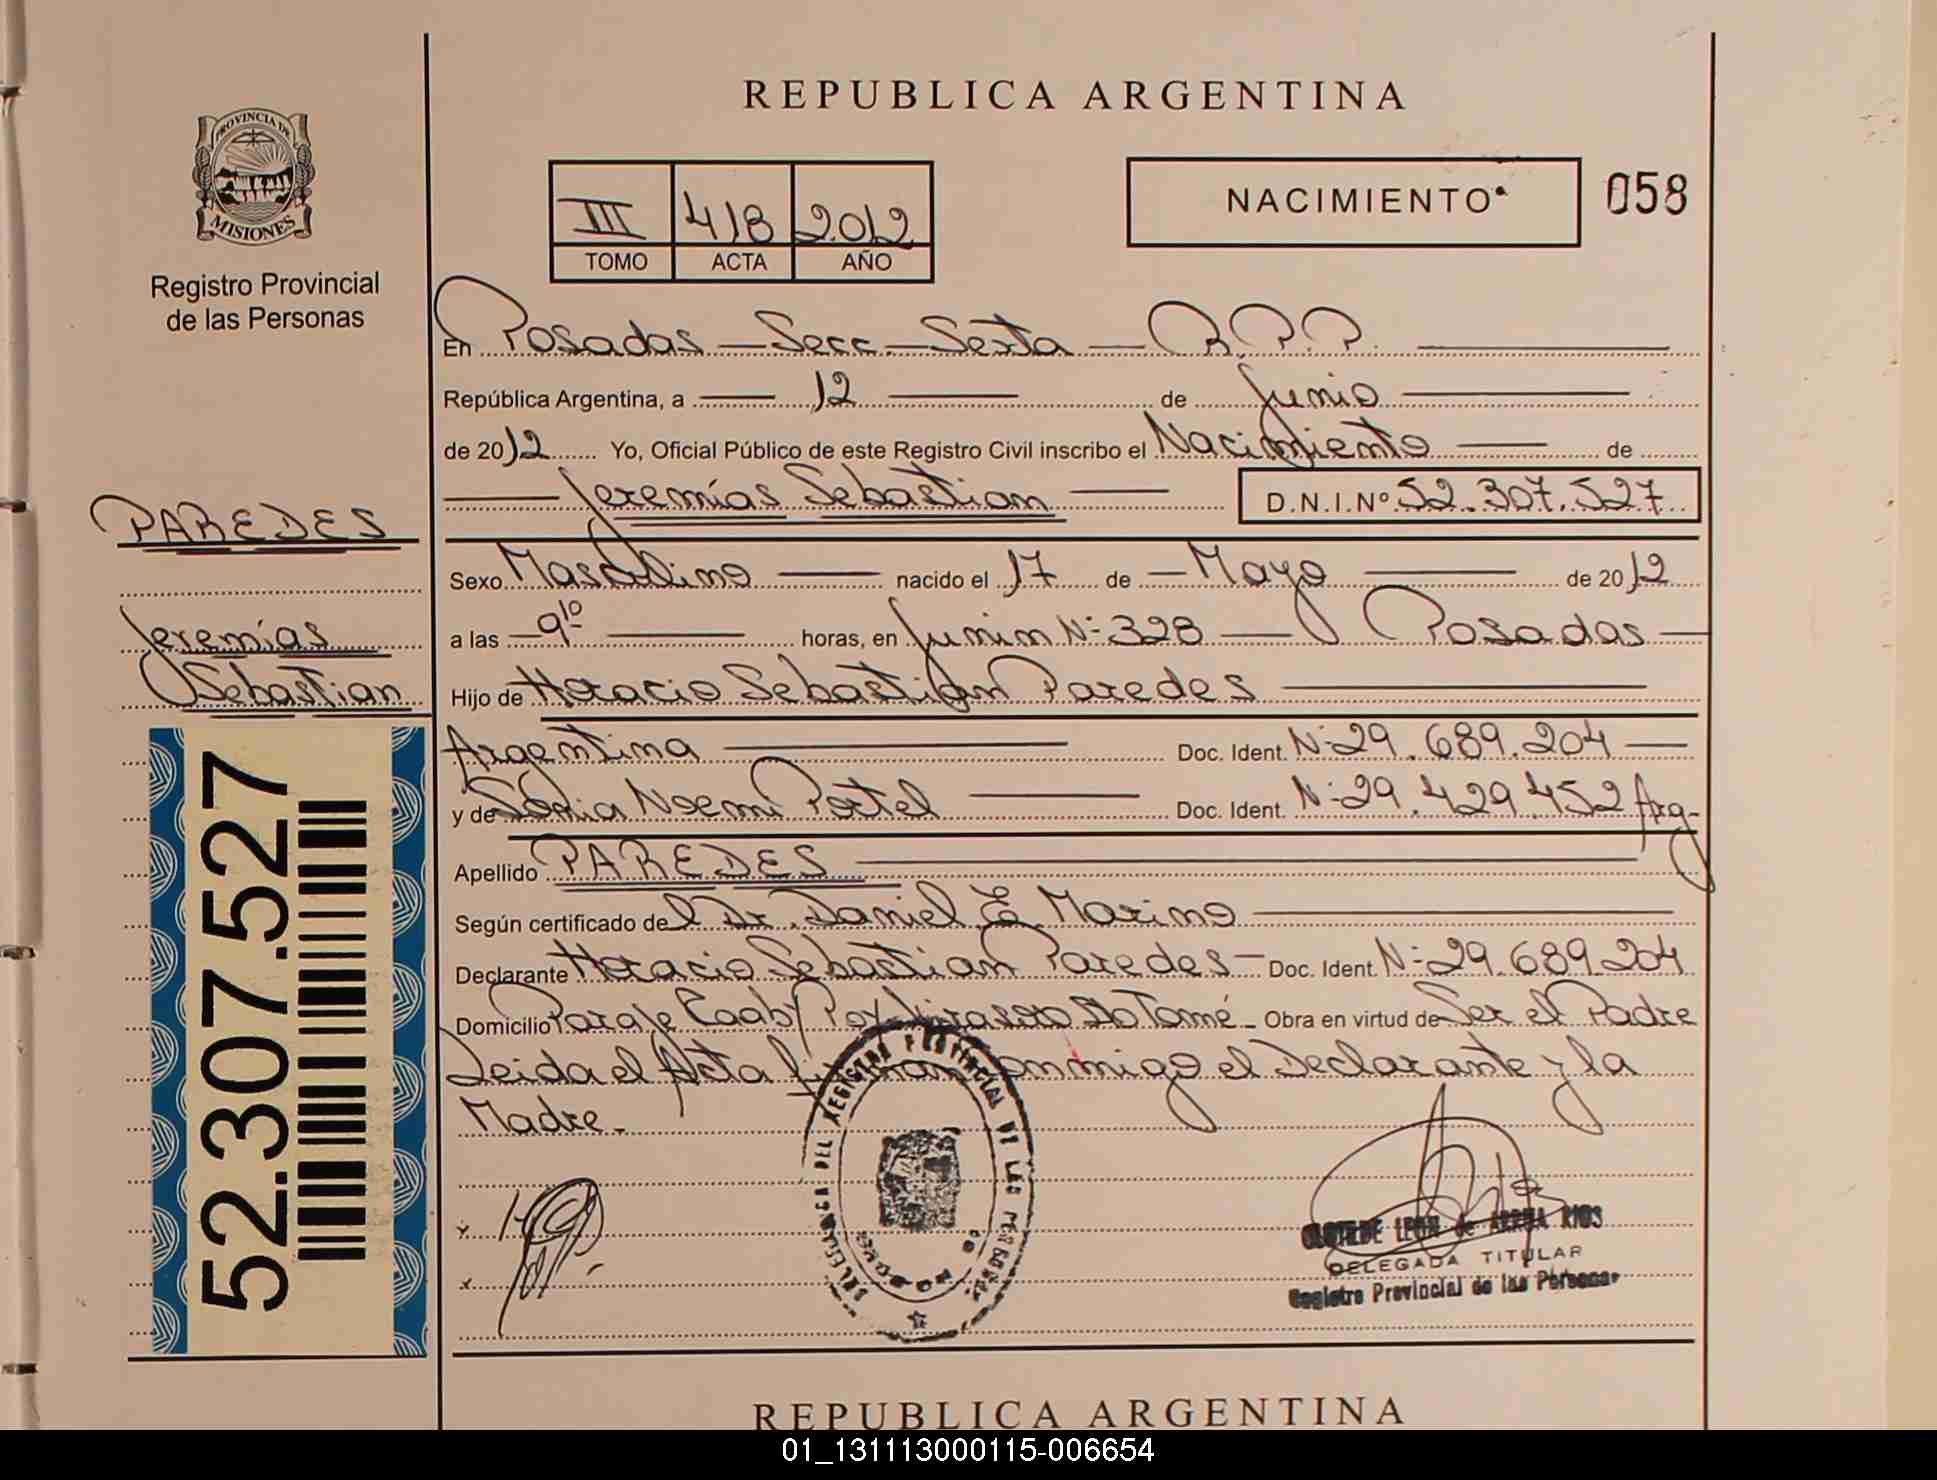 REPUBLICA ARGENTINA
PROVINCIA DE
MISIONES
Registro Provincial
de las Personas
III 418 2012
TOMO ACTA AÑO
NACIMIENTO
058
En Posadas - Secc. - Sexta - R.P.P.
República Argentina, a 12 de Junio
de 2012 Yo, Oficial Público de este Registro Civil inscribo el Nacimiento de
Jeremías Sebastian D.N.I.Nº 52.307.527
PAREDES
Jeremías
Sebastian
52.307.527
Sexo Masculino nacido el 17 de Mayo de 2012
a las 9 10 horas, en Junin Nº 328 Posadas
Hijo de Horacio Sebastian Paredes
Argentina Doc. Ident. Nº 29.689.204
y de Sonia Noemi Portel Doc. Ident. Nº 29.429.452 Arg-
Apellido PAREDES
Según certificado de l Dr. Daniel E. Marino
Declarante Horacio Sebastian Paredes - Doc. Ident. Nº 29.689.204
Domicilio Paraje Tomé - Obra en virtud de Ser el Padre
Leida el Acta conmigo el Declarante y la
Madre.-
DELEGACIA DEL REGISTRO PROVINCIAL DE LAS PERSONAS
CLOTILDE LEON de RIOS
DELEGADA TITULAR
Registro Provincial de las Personas
REPUBLICA ARGENTINA
01_131113000115-006654